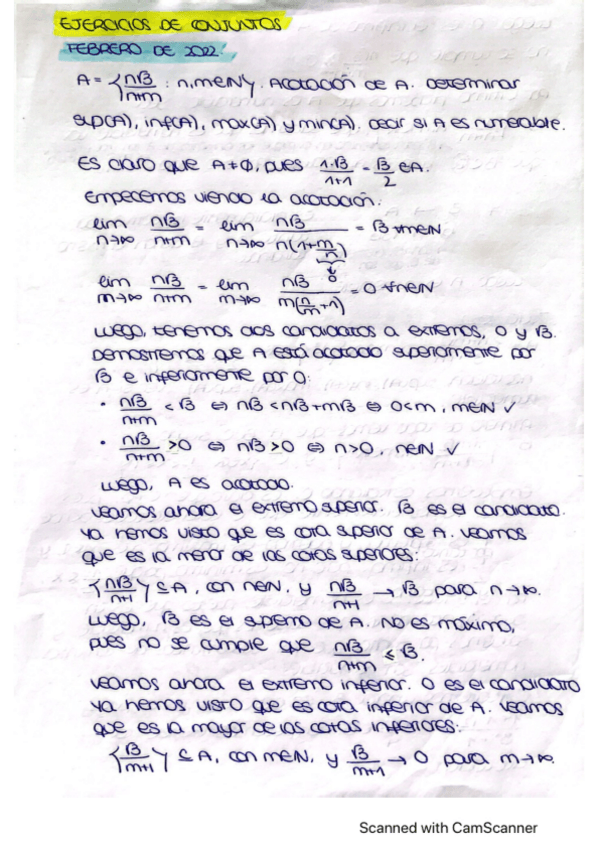 EJERCICIOS DE CONJUNTOS
FEBRERO DE 2022.
A = { n√3 / n+m : n,m∈ℕ }. Acotación de A. Determinar
sup(A), inf(A), max(A) y min(A). Decir si A es numerable.
Es claro que A ≠ ∅, pues 1·√3 / 1+1 = √3 / 2 ∈ A.
Empecemos viendo la acotación:
lim n→∞ n√3 / n+m = lim n→∞ n√3 / n(1+m/n) = √3 ∀m∈ℕ
↓ 0
lim m→∞ n√3 / n+m = lim m→∞ n√3 / m(n/m+1) = 0 ∀n∈ℕ
Luego, tenemos dos candidatos a extremos, 0 y √3.
Demostremos que A está acotado superiormente por
√3 e inferiormente por 0:
• n√3 / n+m < √3 ⇔ n√3 < n√3+m√3 ⇔ 0<m, m∈ℕ ✓
• n√3 / n+m > 0 ⇔ n√3 > 0 ⇔ n>0, n∈ℕ ✓
Luego, A es acotado.
Veamos ahora el extremo superior. √3 es el candidato.
Ya hemos visto que es cota superior de A. Veamos
que es la menor de las cotas superiores:
{ n√3 / n+1 } ⊆ A, con n∈ℕ, y n√3 / n+1 → √3 para n→∞.
Luego, √3 es el supremo de A. No es máximo,
pues no se cumple que n√3 / n+m ≤ √3.
Veamos ahora el extremo inferior. 0 es el candidato
Ya hemos visto que es cota inferior de A. Veamos
que es la mayor de las cotas inferiores:
{ √3 / m+1 } ⊆ A, con m∈ℕ, y √3 / m+1 → 0 para m→∞.
Scanned with CamScanner